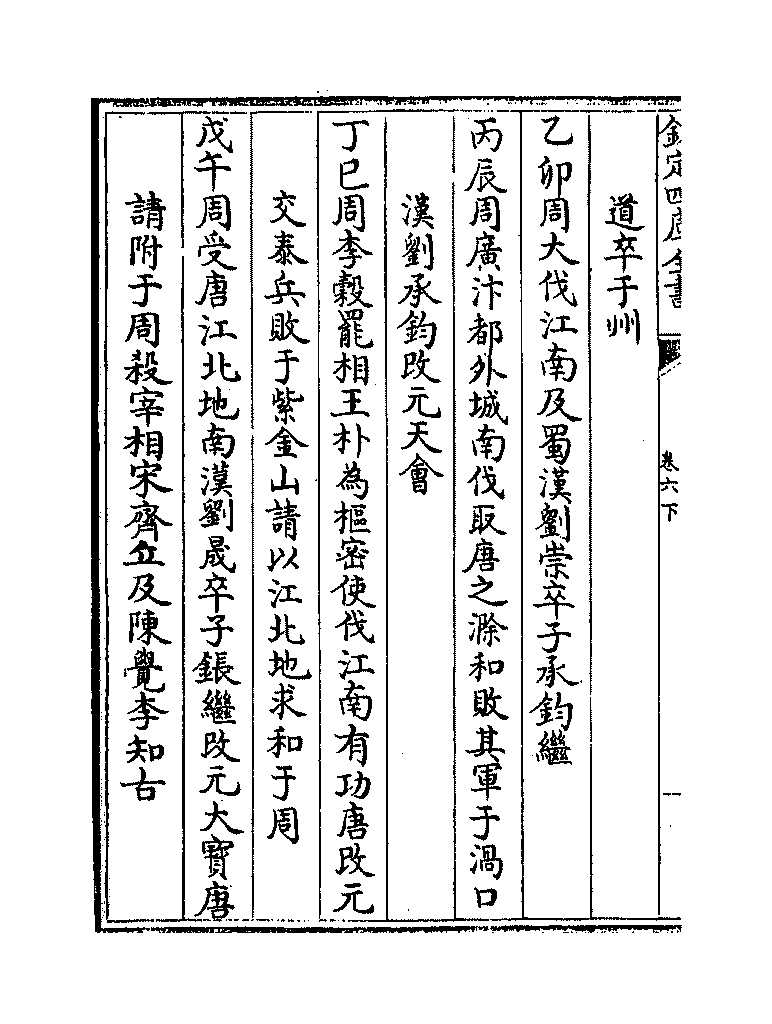 欽定四庫全書
卷六下
道卒于州
乙卯周大伐江南及蜀漢劉崇卒子承鈞繼
丙辰周廣汴都外城南伐取唐之滁和敗其軍于渦口
漢劉承鈞改元天會
丁巳周李穀罷相王朴為樞密使伐江南有功唐改元
交泰兵敗于紫金山請以江北地求和于周
戊午周受唐江北地南漢劉晟卒子鋹繼改元大寶唐
請附于周殺宰相宋齊丘及陳覺李知古